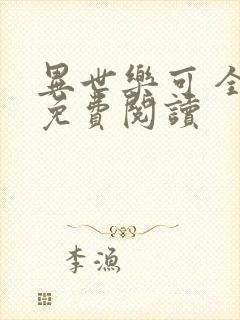 異世樂可全
免費閱讀
李漁